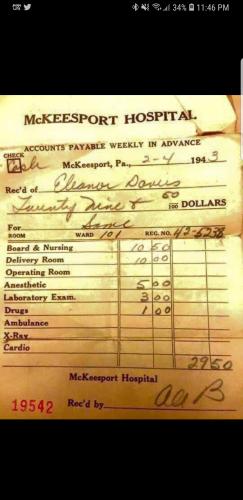 34% 11:46 PM
McKEESPORT HOSPITAL
ACCOUNTS PAYABLE WEEKLY IN ADVANCE
CHECK
Cash McKeesport, Pa., 2-4 1943
Rec'd of Eleanor Davis
Twenty Nine & 50/100 DOLLARS
For Same
ROOM WARD 101 REG. NO. 43-5238
Board & Nursing 10 50
Delivery Room 10 00
Operating Room
Anesthetic 5 00
Laboratory Exam. 3 00
Drugs 1 00
Ambulance
X-Ray
Cardio
29 50
McKeesport Hospital
19542 Rec'd by aaB